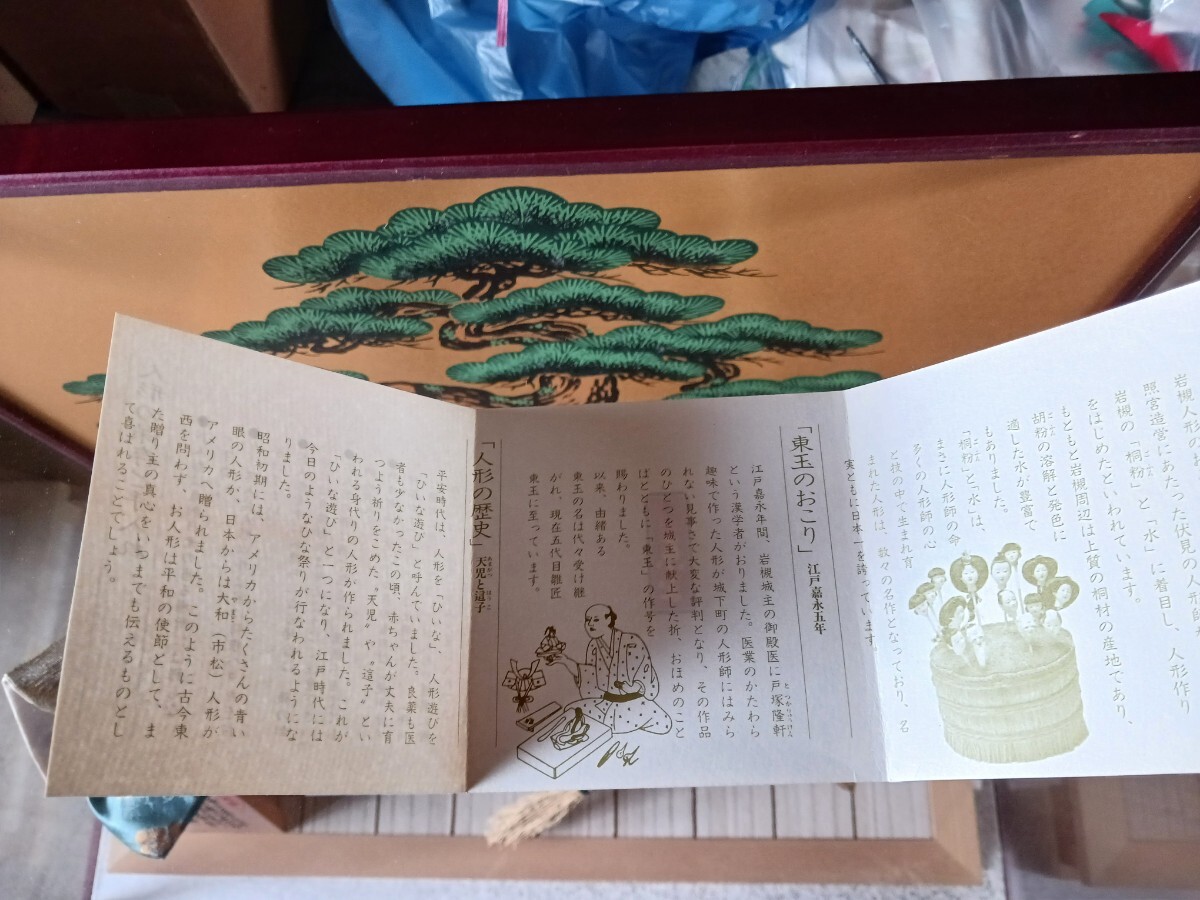 照営造営にあたった伏見の
岩槻の「桐粉」と「水」に着目し、人形作り
をはじめたといわれています。
もともと岩槻周辺は上質の桐材の産地であり、
胡粉の溶解と発色に
適した水が豊富で
もありました。
「桐粉」と、「水」は、
まさに人形師の命
多くの人形師の心
と技の中で生まれ育
まれた人形は、数々の名作となっており、名
実ともに日本一を誇っています。
「東玉のおこり」 江戸嘉永五年
江戸嘉永年間、岩槻城主の御殿医に戸塚隆軒
という漢学者がおりました。医業のかたわら
趣味で作った人形が城下町の人形師にはみら
れない見事さで大変な評判となり、その作品
のひとつを城主に献上した折、おほめのこと
ばとともに「東玉」の作号を
賜わりました。
以来、由緒ある
東玉の名は代々受け継
がれ、現在五代目雛匠
東玉に至っています。
「人形の歴史」 天児と這子
平安時代は、人形を「ひいな」、人形遊びを
「ひいな遊び」と呼んでいました。良薬も医
者も少なかったこの頃、赤ちゃんが丈夫に育
つよう祈りをこめた〝天児〟や〝這子〟とい
われる身代りの人形が作られました。これが
「ひいな遊び」と一つになり、江戸時代には
今日のようなひな祭りが行なわれるようにな
りました。
昭和初期には、アメリカからたくさんの青い
眼の人形が、日本からは大和(市松)人形が
アメリカへ贈られました。このように古今東
西を問わず、お人形は平和の使節として、ま
た贈り主の真心をいつまでも伝えるものとし
て喜ばれることでしょう。